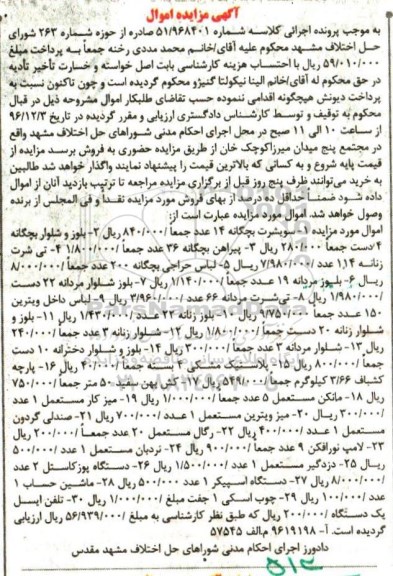 آگهی مزایده اموال
به موجب پرونده اجرائی کلاسه شماره ۵۱/۹۶۸۴۰۱ صادره از حوزه شماره ۲۶۳ شورای
حل اختلاف مشهد محکوم علیه آقای/خانم محمد مددی رخنه جمعاً به پرداخت مبلغ
۵۹/۰۱۰/۰۰۰ ریال با احتساب هزینه کارشناسی بابت اصل خواسته و خسارت تأخیر تأدیه
در حق محکوم له آقای/خانم الینا نیکولتا گنیژو محکوم گردیده است و چون تاکنون نسبت به
پرداخت دیونش هیچگونه اقدامی ننموده حسب تقاضای طلبکار اموال مشروحه ذیل در قبال
محکوم به توقیف و توسط کارشناس دادگستری ارزیابی و مقرر گردیده در تاریخ ۹۶/۱۲/۳
از ساعت ۱۰ الی ۱۱ صبح در محل اجرای احکام مدنی شوراهای حل اختلاف مشهد واقع
در مجتمع پنج میدان میرزاکوچک خان از طریق مزایده حضوری به فروش برسد مزایده از
قیمت پایه شروع و به کسانی که بالاترین قیمت را پیشنهاد نمایند واگذار خواهد شد طالبین
به خرید می‌توانند ظرف پنج روز قبل از برگزاری مزایده مراجعه تا ترتیب بازدید آنان از اموال
داده شود ضمناً حداقل ده درصد از بهای فروش مورد مزایده نقداً و فی‌المجلس از برنده
وصول خواهد شد. اموال مورد مزایده عبارت است از:
اموال مورد مزایده ۱- سویشرت بچگانه ۱۴ عدد جمعاً /۸۴۰/۰۰۰ ریال ۲- بلوز و شلوار بچگانه
۴ دست جمعاً ۲۸۰/۰۰۰ ریال ۳- پیراهن بچگانه ۳۶ عدد جمعاً /۱/۸۰۰/۰۰۰ ۴- تی شرت
زنانه ۱۱۴ عدد /۷/۹۸۰/۰۰۰ ریال ۵- لباس حراجی بچگانه ۲۰۰ عدد جمعاً /۸/۰۰۰/۰۰۰
ریال ۶- بلیوز مردانه ۱۹ عدد جمعاً /۱/۱۴۰/۰۰۰ ریال ۷- بلوز شلوار مردانه ۲۲ دست
/۱/۹۸۰/۰۰۰ ریال ۸- تی‌شرت مردانه ۶۶ عدد /۳/۹۶۰/۰۰۰ ریال ۹- لباس داخل ویترین
۱۵۰ عدد جمعاً /۹/۷۵۰/۰۰۰ ریال ۱۰- بلوز زنانه ۲۳ عدد /۱/۴۳۰/۰۰۰ ریال ۱۱- بلوز و
شلوار زنانه ۲۰ دست جمعاً /۱/۸۰۰/۰۰۰ ریال ۱۲- شلوار زنانه ۳ عدد جمعاً /۲۴۰/۰۰۰
ریال ۱۳- شلوار مردانه ۳ عدد جمعاً /۳۰۰/۰۰۰ ریال ۱۴- بلوز و شلوار دخترانه ۱۰ دست
جمعاً /۸۰۰/۰۰۰ ریال ۱۵- پلاستیک مشکی ۴ بسته جمعاً /۴۰/۰۰۰ ریال ۱۶- پارچه
کشباف ۳/۶۶ کیلوگرم جمعاً /۵۴۹/۰۰۰ ریال ۱۷- کش پهن سفید ۵۰ متر جمعاً /۷۵۰/۰۰۰
ریال ۱۸- مانکن مستعمل ۵ عدد جمعاً /۱/۰۰۰/۰۰۰ ریال ۱۹- میز کار مستعمل ۱ عدد
/۳۰۰/۰۰۰ ریال ۲۰- میز ویترین مستعمل ۱ عدد /۷۰۰/۰۰۰ ریال ۲۱- صندلی گردون
مستعمل ۱ عدد /۴۰۰/۰۰۰ ریال ۲۲- رگال مستعمل ۲۰ عدد جمعاً /۲۰۰/۰۰۰ ریال
۲۳- لامپ نورافکن ۹ عدد جمعاً /۹۰۰/۰۰۰ ریال ۲۴- نردبان مستعمل ۱ عدد /۵۰۰/۰۰۰
ریال ۲۵- دزدگیر مستعمل ۱ عدد /۱/۵۰۰/۰۰۰ ریال ۲۶- دستگاه پوزکاستل ۲ عدد
/۸/۰۰۰/۰۰۰ ریال ۲۷- دستگاه اسپیکر ۱ عدد ۵۰۰/۰۰۰ ریال ۲۸- ماشین حساب ۱
عدد /۱۰۰/۰۰۰ ریال ۲۹- چوب اسکی ۱ جفت مبلغ /۱/۰۰۰/۰۰۰ ریال ۳۰- تلفن ایسل
یک دستگاه /۲۰۰/۰۰۰ ریال که طبق نظر کارشناسی به مبلغ /۵۶/۹۳۹/۰۰۰ ریال ارزیابی
گردیده است. آ- ۹۶۱۹۱۹۸ م.الف ۵۷۵۴۵
دادورز اجرای احکام مدنی شوراهای حل اختلاف مشهد مقدس